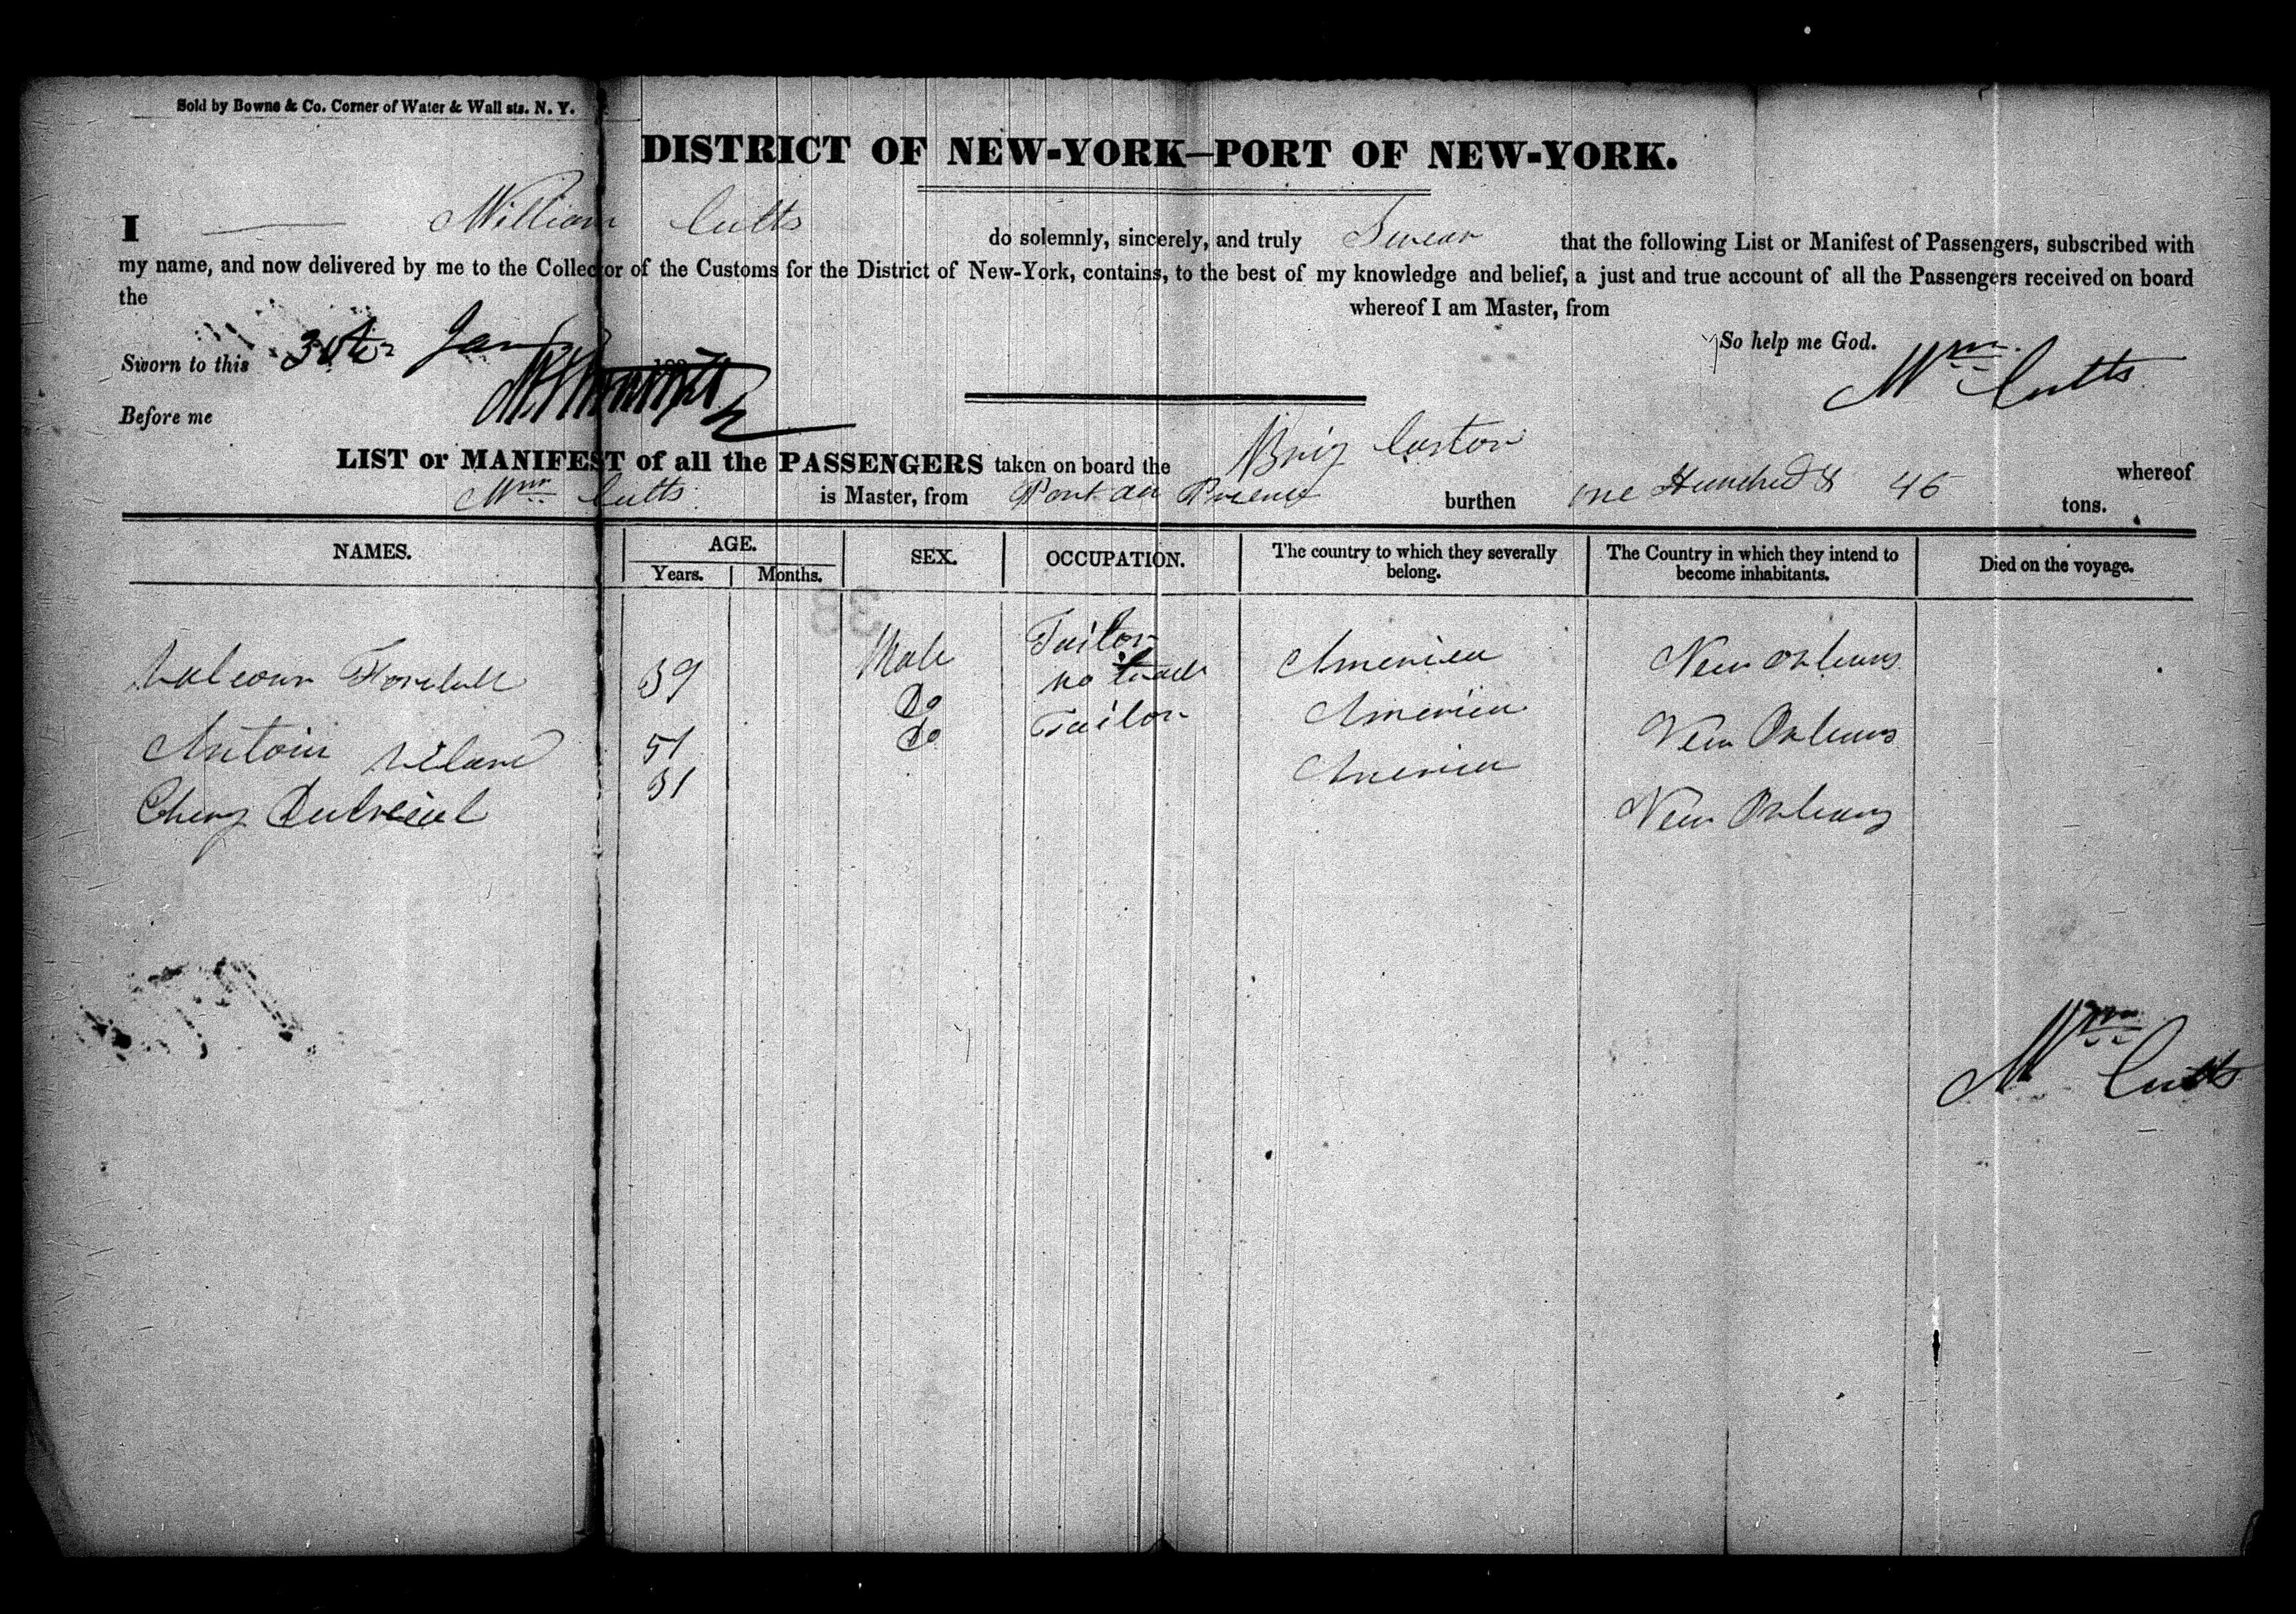 Sold by Bowne & Co. Corner of Water & Wall sts. N. Y.
DISTRICT OF NEW-YORK—PORT OF NEW-YORK.
I William Cutts do solemnly, sincerely, and truly Swear that the following List or Manifest of Passengers, subscribed with
my name, and now delivered by me to the Collector of the Customs for the District of New-York, contains, to the best of my knowledge and belief, a just and true account of all the Passengers received on board
the whereof I am Master, from
So help me God.
Sworn to this 30th Jan
Wm Cutts
Before me
LIST or MANIFEST of all the PASSENGERS taken on board the Brig Castor whereof
Wm Cutts is Master, from Port au Prince burthen one Hundred & 46 tons.
NAMES. AGE. SEX. OCCUPATION. The country to which they severally belong. The Country in which they intend to become inhabitants. Died on the voyage.
Years. Months.
39 Male Tailor America New Orleans
Antoin 51 Do no trade America New Orleans
31 do Tailor America New Orleans
Wm Cutts